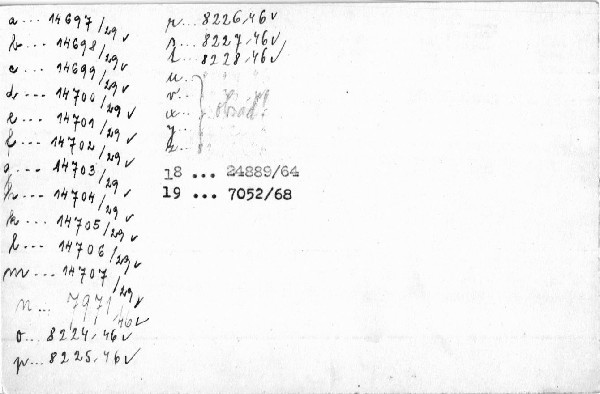 a... 14697/29 v
b... 14698/29 v
c... 14699/29 v
d... 14700/29 v
e... 14701/29 v
f... 14702/29 v
g... 14703/29 v
h... 14704/29 v
k... 14705/29 v
l... 14706/29 v
m... 14707/29 v
n... 7971/46 v
o... 8224/46 v
p... 8225/46 v
r... 8226/46 v
s... 8227/46 v
t... 8228/46 v
u...
v...
x...
y...
z...
18 ... 24889/64
19 ... 7052/68